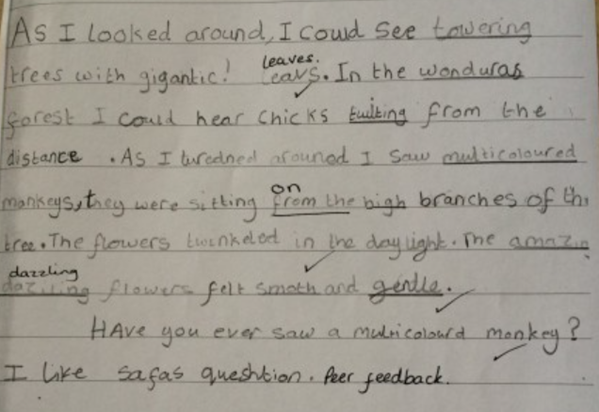 As I looked around, I could see towering
leaves.
trees with gigantic! leavs. In the wonduras
forest I could hear chicks twiting from the
distance. As I turedned around I saw multicoloured
on
monkeys, they were sitting from the high branches of th
tree. The flowers twinkeled in the daylight. The amazin
dazzling
daziling flowers felt smoth and gentle.
HAve you ever saw a multicolourd monkey?
I like safas queshtion. Peer feedback.